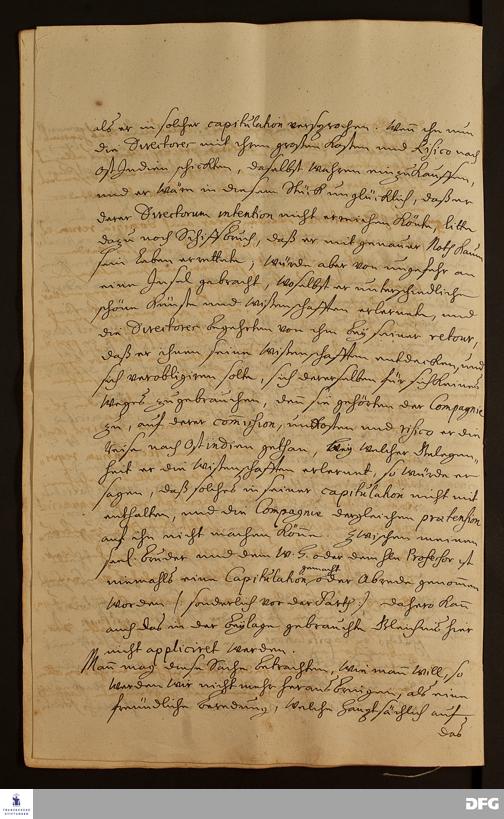 als er in solcher capitulation versprochen. Wenn ihn nun
die Directores mit ihren großen Kosten und Risico nach
OstIndien schickten, daselbst Wahren einzukauffen,
und er wäre in diesem Stück unglücklich, daß er
derer Directorum intention nicht erreichen könte, litte
dazu noch Schiffbruch, daß er mit genauer Noth kaum
sein Leben errettete, würde aber von ungefehr an
eine Insel gebracht, woselbst er unterschiedliche
schöne Künste und Wißenschafften erlernete, und
die Directores begehrten von ihm bey seiner retour,
daß er ihnen seine Wißenschafften entdecken, und
sich verobligiren solte, sich derselben für sich keines
Weges zu gebrauchen, denn sie gehörten der Compagnie
zu, auf derer comission, unkosten und risico er die
Reise nach Ostindien gethan, bey welcher Gelegen-
heit er die Wißenschafften erlernet, so würde er
sagen, daß solches in seiner capitulation nicht mit
enthalten, und die Compagnie dergleichen praetension
auf ihn nicht machen könne. Zwischen meinem
seel. Bruder und dem W. H. oder dem Hln Professor ist
niemahls eine Capitulation gemacht oder Abrede genommen
worden (sonderlich vor der Farth) dahero kan
auch das in der Beylage gebrauchte Gleichnis hier
nicht appliciret werden.
Man mag diese Sache betrachten, wie man will, so
werden wir nicht mehr heraus bringen, als eine
freundliche beredung, welche hauptsächlich auf
das
FRANCKESCHE
STIFTUNGEN
DFG